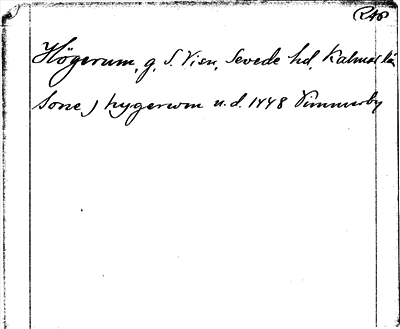 R48
Högerum, g, S. Visn, Sevede hd, Kalmar län
Sone) hygerwm u.d. 1448 Vimmerby